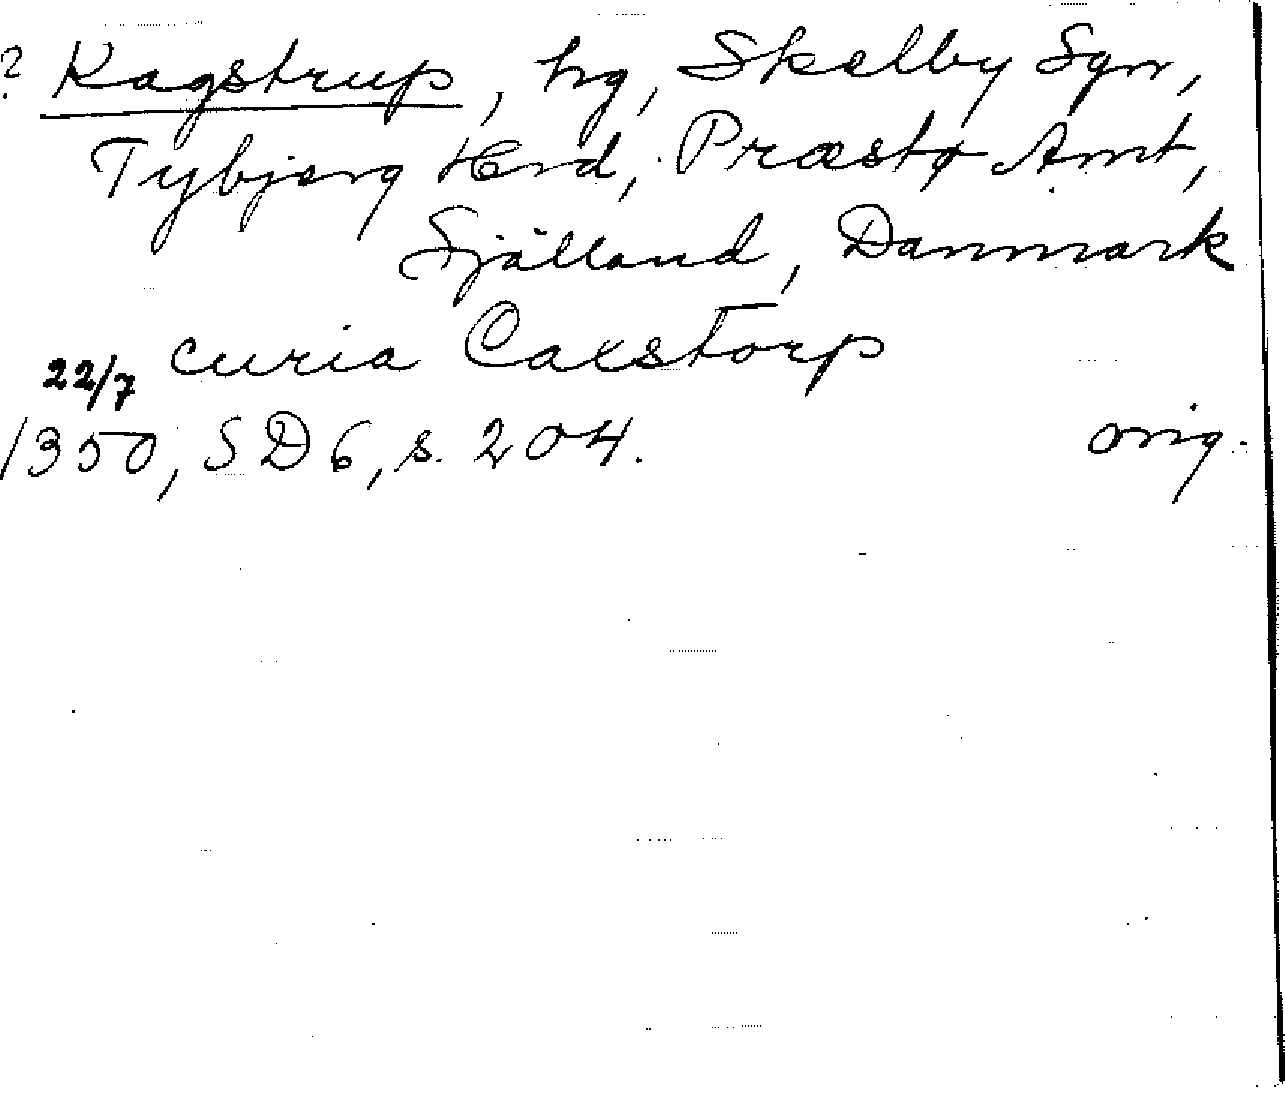 ? Kagstrup, hg, Skelby Sgn,
Tybjerg Hrd, Præstø Amt,
Själland, Danmark
curia Caxstorp
22/7
1350, SD 6, s. 204. orig.